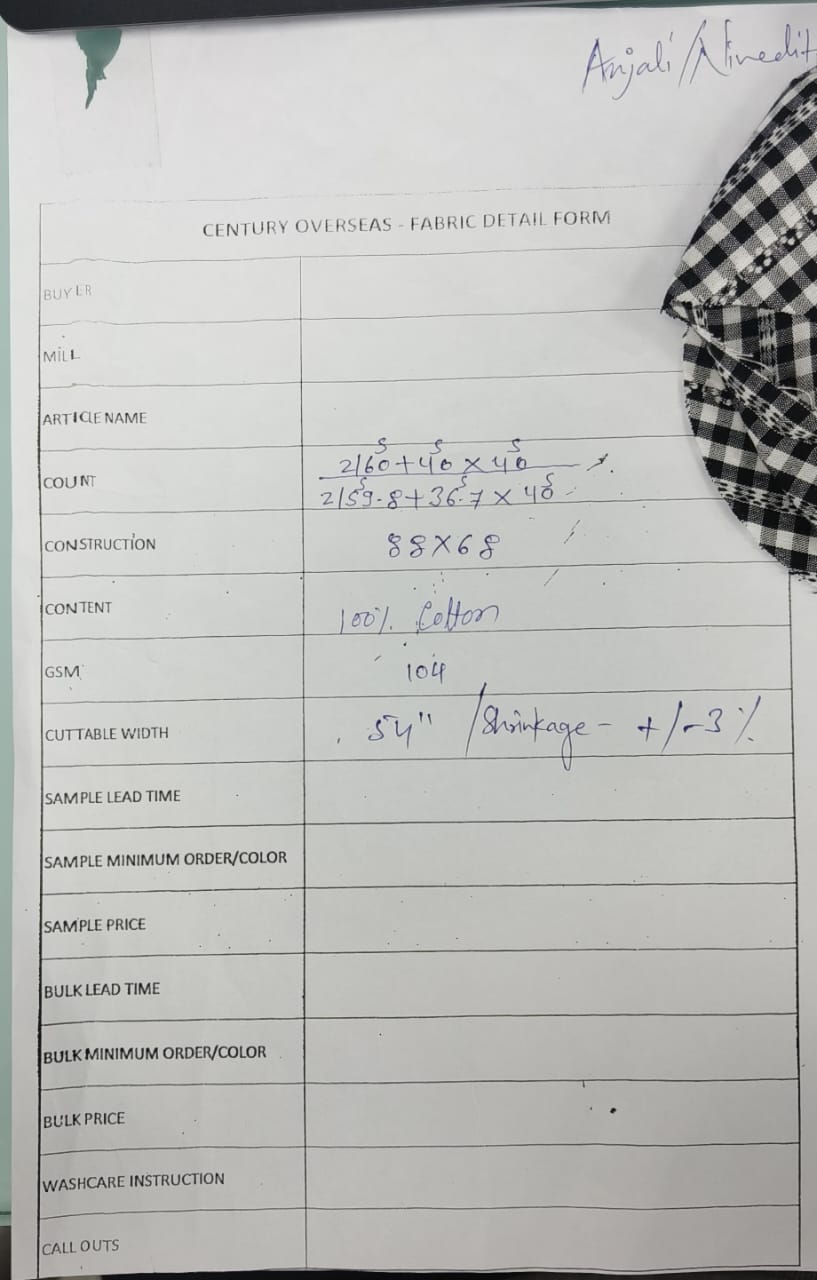 Anjali/Nivedit
CENTURY OVERSEAS - FABRIC DETAIL FORM
BUYER
MILL
ARTICLE NAME
COUNT 2/60s+40s X 40s
2/59.8s+36.7s X 40s
CONSTRUCTION 88X68
CONTENT 100% Cotton
GSM 104
CUTTABLE WIDTH 54" /Shrinkage - +/-3%
SAMPLE LEAD TIME
SAMPLE MINIMUM ORDER/COLOR
SAMPLE PRICE
BULK LEAD TIME
BULK MINIMUM ORDER/COLOR
BULK PRICE
WASHCARE INSTRUCTION
CALL OUTS